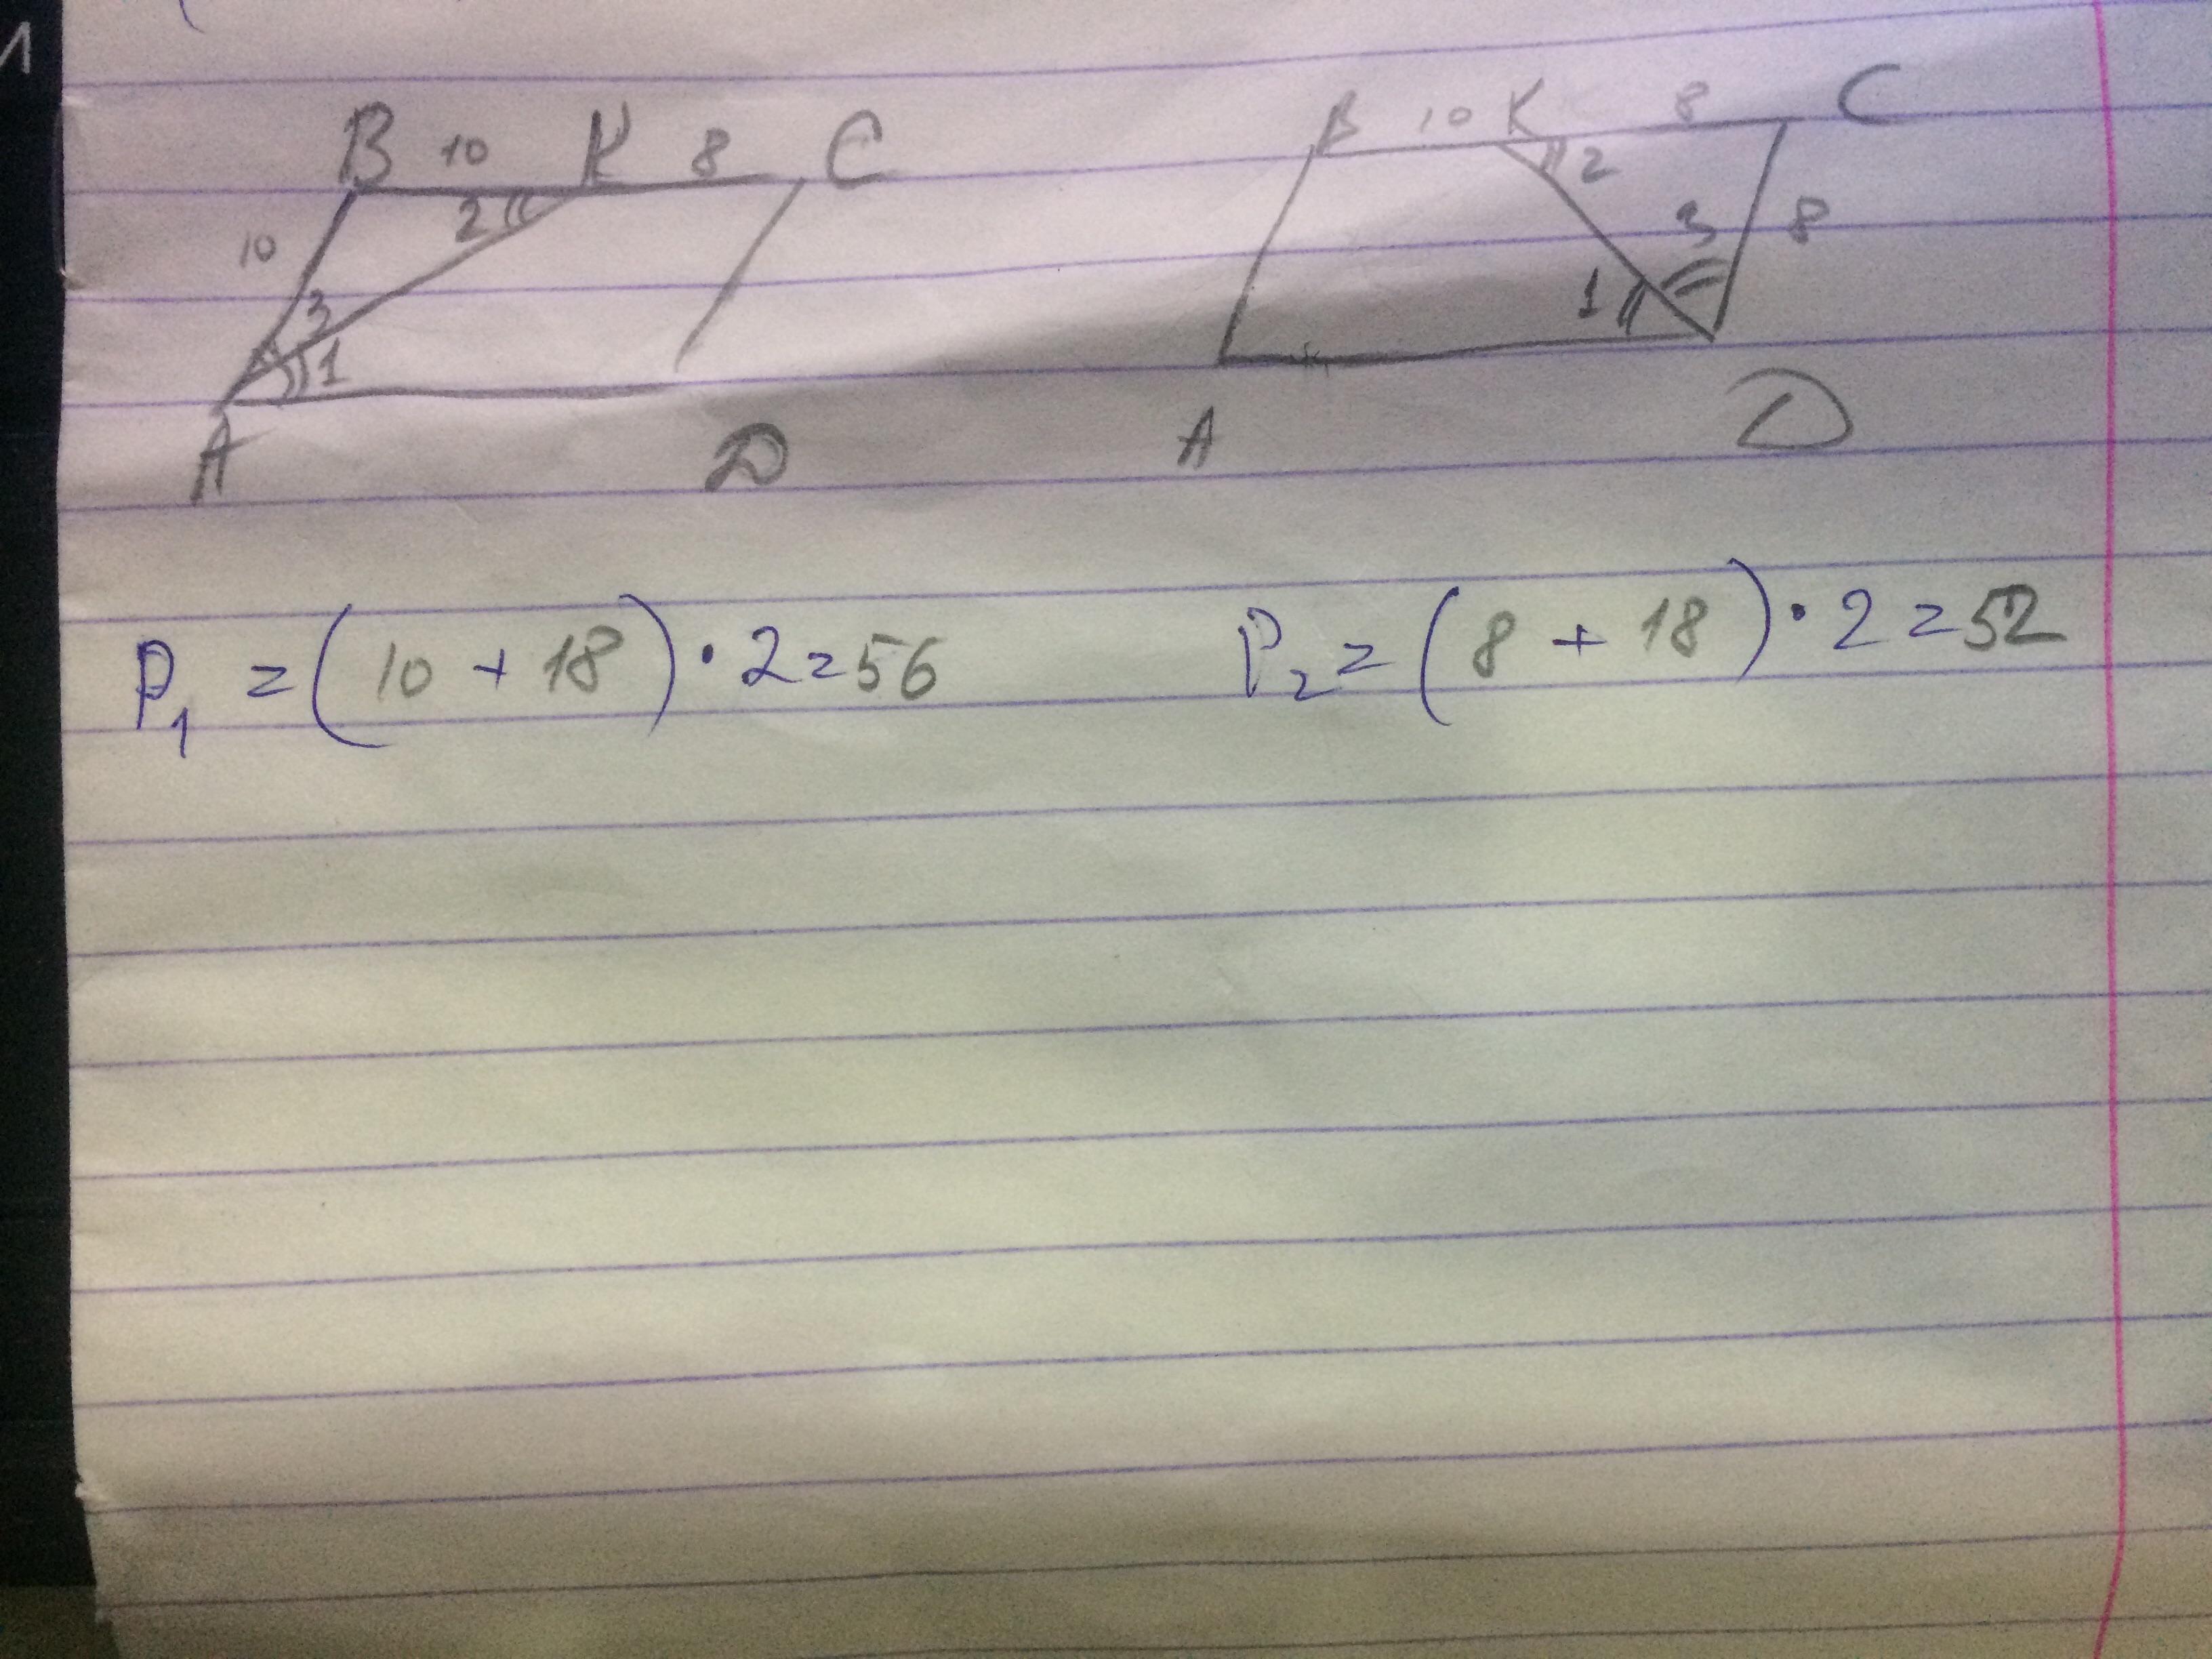 B 10 K 8 C
10 2
3
1
A D
B 10 K 8 C
2
3 8
1
A D
P₁ = (10 + 18) · 2 = 56
P₂ = (8 + 18) · 2 = 52